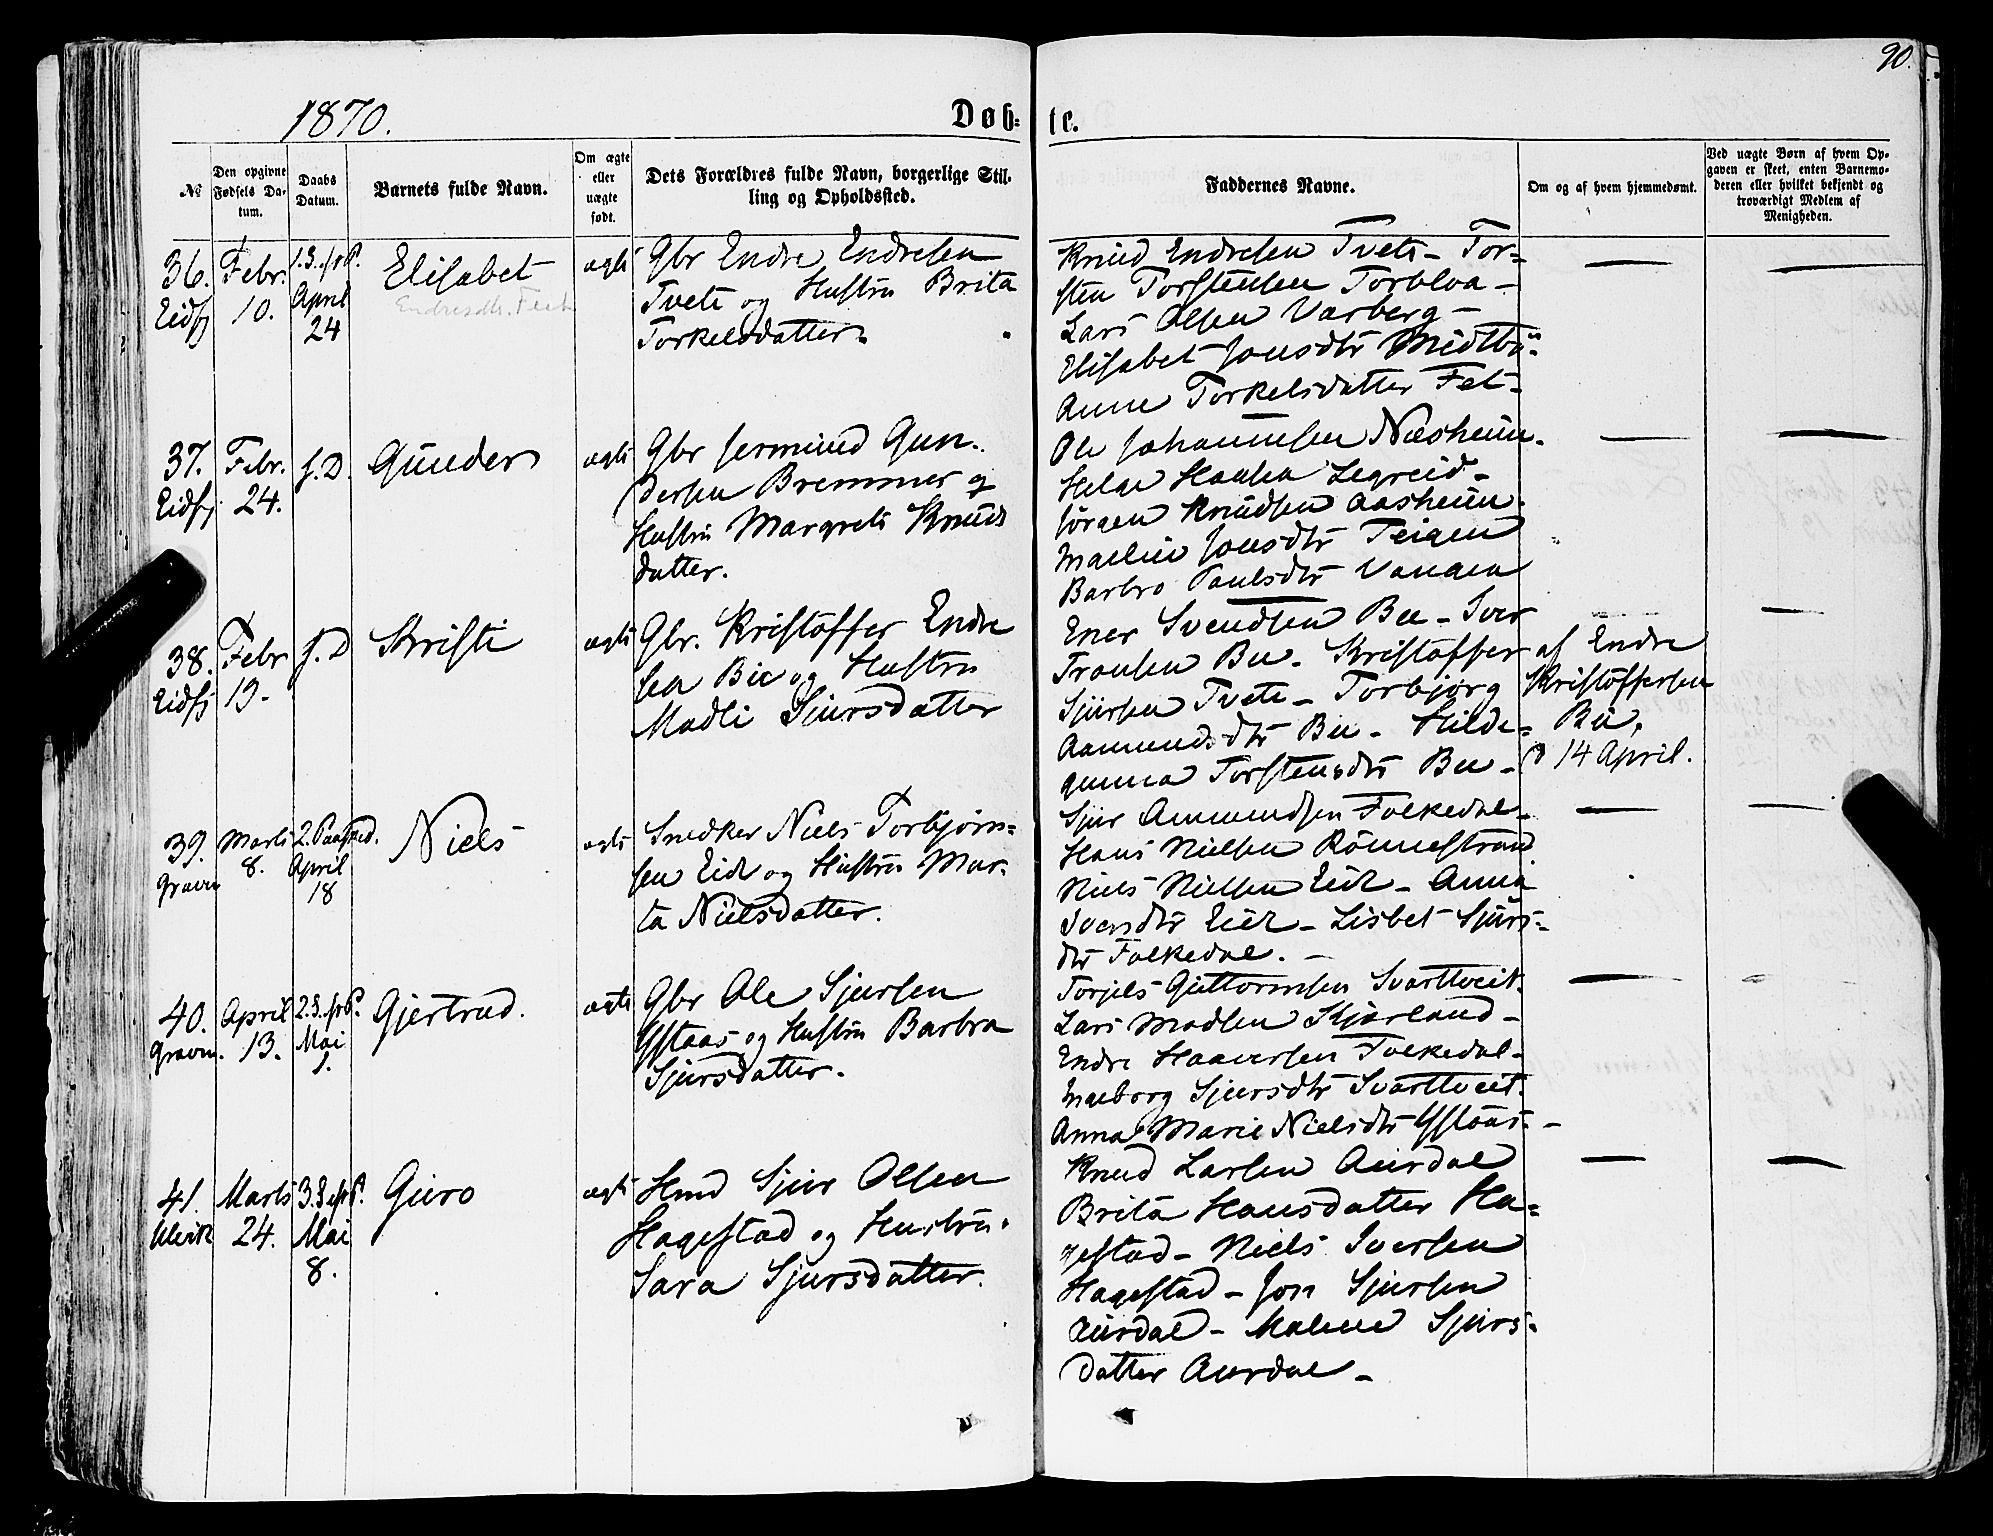 90.
1870.
Døb-
te.
№
Den opgivne Fødsels Da-tum.
Daabs Datum.
Barnets fulde Navn.
Om ægte eller uægte født.
Dets Forældres fulde Navn, borgerlige Stil-
ling og Opholdssted.
Faddernes Navne.
Om og af hvem hjemmedømt.
Ved uægte Børn af hvem Op-
gaven er skeet, enten Barnemo-
deren eller hvilket bekjendt og
troværdigt Medlem af
Menigheden.
36.
Eidfj
Febr.
10.
1. S. f. P.
April
24
Elisabet
Endresdtr.
ægte
Gbr Endre Endresen
Tveto og Hustru Brita
Torkelsdatter.
Knud Endresen Tveto - Tor-
sten Torstensen Torbloa -
Lars Olsen Varberg -
Elisabet Jonsdtr Midtbø.
Anna Torkelsdatter Fet -
37.
Eidfj
Febr.
24.
s. D.
Gunder
ægte
Gbr Jermund Gun-
dersen Bremmer og
Hustru Margreta Knuds
datter.
Ole Johannesen Næsheim.
Helge Hansen Legreid -
Jørgen Knudsen Aasheim.
Mælin Jonsdtr Teigen
Barbro Paulsdtr Vangen
38.
Eidfj
Febr
19.
s. D
Kristi
ægte
Gbr. Kristoffer Endre
sen Bu og Hustru
Madli Sjursdatter
Ener Svendsen Bu - Iver
Tronsen Bu - Kristoffer
Sjursen Tveto - Torbjørg
Aamundsdtr Bu - Hilde-
gunna Torstensdtr Bu -
af Endre
Kristoffersen
Bu,
d 14 April.
39.
Gravn
Marts
8.
2. Paasked.
April
18
Niels
ægte
Snedker Niels Torbjørn-
sen Eid og Hustru Mar-
ta Nielsdatter.
Sjur Aamundsen Folkedal -
Hans Nielsen Rønnestrand
Niels Nielsen Eid - Anna
Iversdtr Eid - Lisbet Sjurs-
dtr Folkedal. -
40.
Gravn.
April
13.
2. S. f. P.
Mai
1.
Gjertrud.
ægte
Gbr Ole Sjursen
Ystaas og Hustru Barbra
Sjursdatter.
Torjels Guttormsen Svartveit.
Lars Madsen Skjørland -
Endre Haaversen Folkedal -
Ingeborg Sjursdtr Svartveit.
Anna Marie Nielsdtr Ystaas. -
41.
Ulvik
Marts
24.
3. S. f. P.
Mai
8.
Guro
ægte
Hmd Sjur Olsen
Hagestad og Hustru
Sara Sjursdatter.
Knud Larsen Aurdal
Brita Hansdatter Ha-
gestad - Niels Iversen
Hagestad - Jon Sjursen
Aurdal - Malene Sjurs-
datter Aurdal -